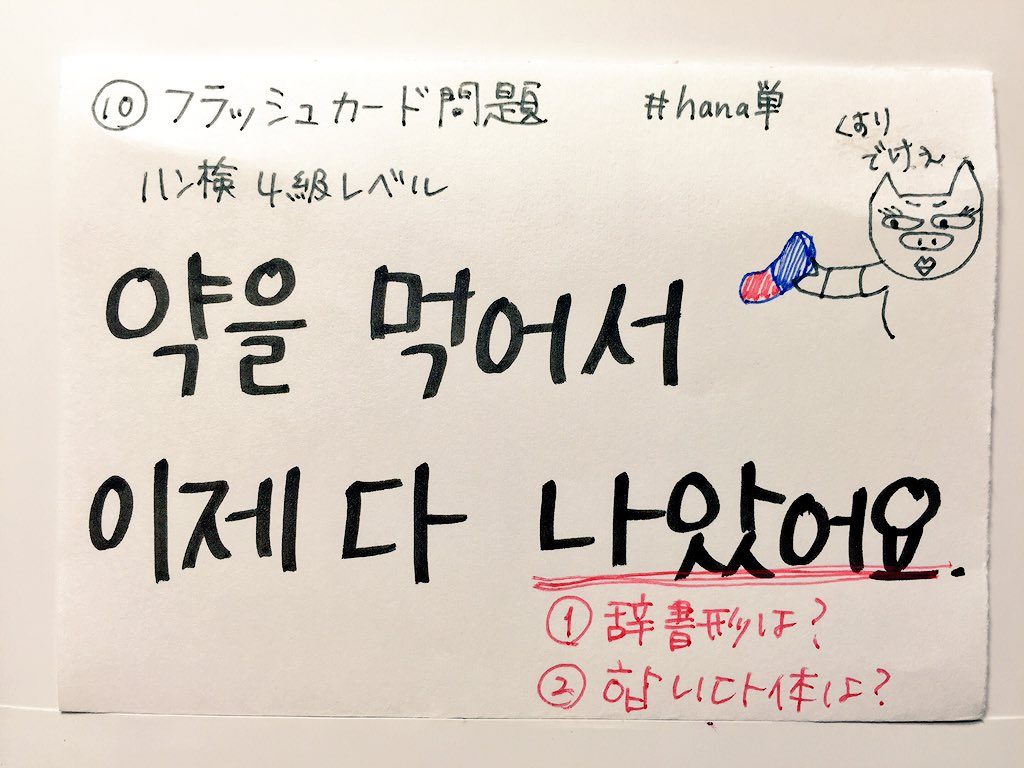 ⑩ フラッシュカード問題 #hana単
ハン検 4級レベル
くすり
でけぇ
약을 먹어서
이제 다 나았어요.
① 辞書形は?
② 합니다体は?